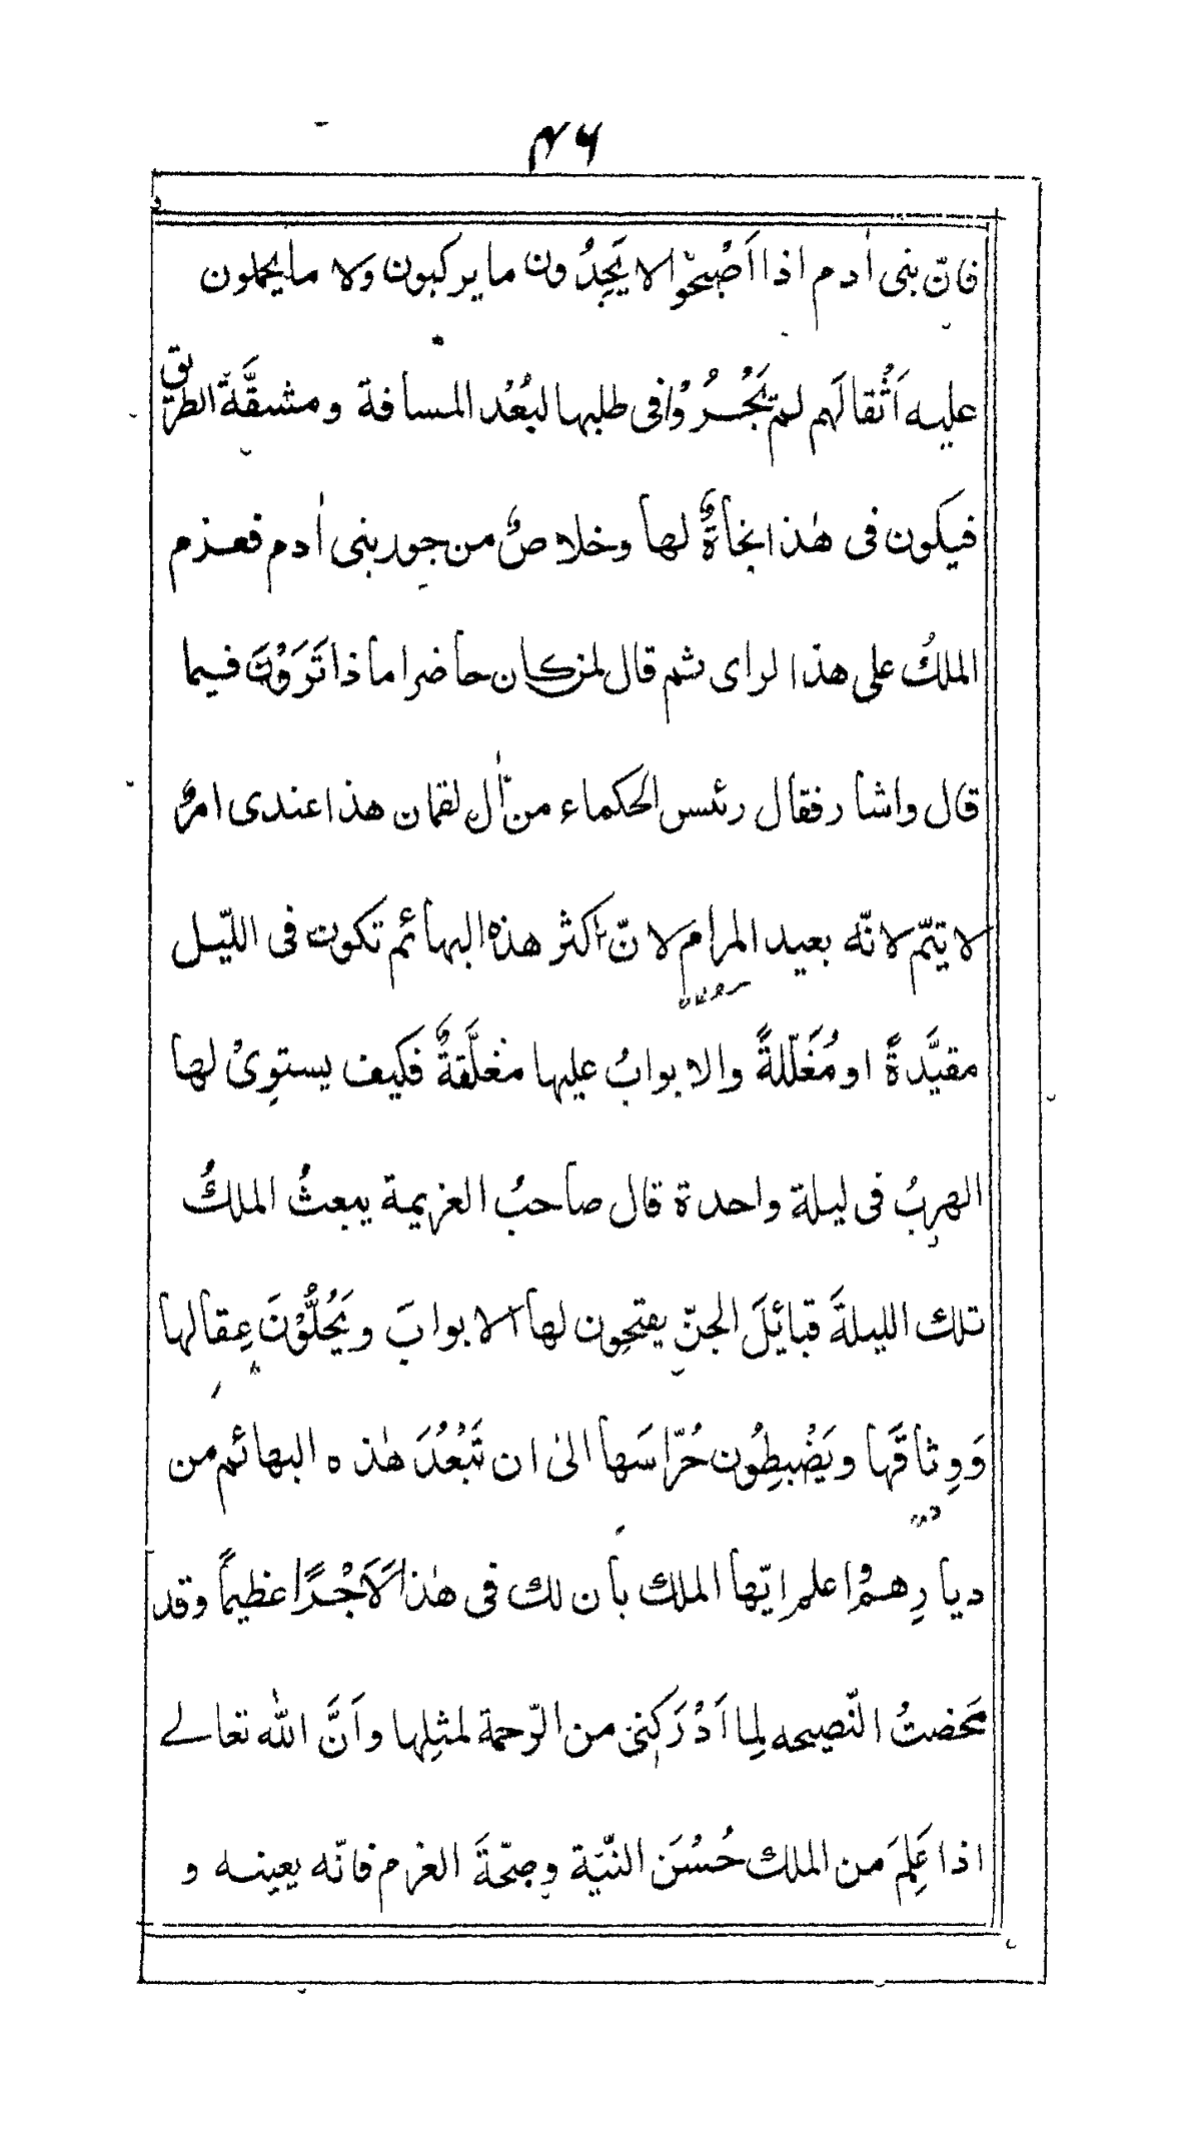 ۴۶
فانّ بنى اٰدم اذا اَصْبَحُوْا لا يَجِدُون ما يركبون ولا ما يحملون
عليه اَثْقالَهم لم يَجْسُرُوْا فى طلبها لبُعْد المسافة ومشقَّة الطريق
فيكون فى هٰذا نجاةٌ لها وخلاصٌ من جور بنى اٰدم فعزم
الملكُ على هذا الراى ثم قال لمن كان حاضرا ماذا تَرَوْنَ فيما
قال واشار فقال رئس الحكماء من اٰل لقمان هذا عندى امرٌ
لا يتمّ لانّه بعيد المرام لانّ اكثر هذه البهائم تكون فى الليّل
مقيَّدةً او مُغَلّلةً والابوابُ عليها مغلَّقةٌ فكيف يستوِىْ لها
الهربُ فى ليلة واحدة قال صاحبُ العزيمة يبعثُ الملكُ
تلك الليلةَ قبائلَ الجنّ يفتحون لها الابوابَ ويَحُلُّوْنَ عِقالها
وَوِثاقَها ويَضْبِطُون حُرّاسَها الىٰ ان تَبْعُدَ هٰذه البهائم من
ديارِهمْ اعلم ايّها الملك بان لك فى هٰذا لَاَجْرًا عظيماً وقد
محضتُ النّصيحه لِما اَدْرَكنى من الرّحمة لمثلِها واَنَّ الله تعالے
اذا عَلِمَ من الملك حُسْنَ النيّة وصِحّةَ العزم فانّه يعينه و